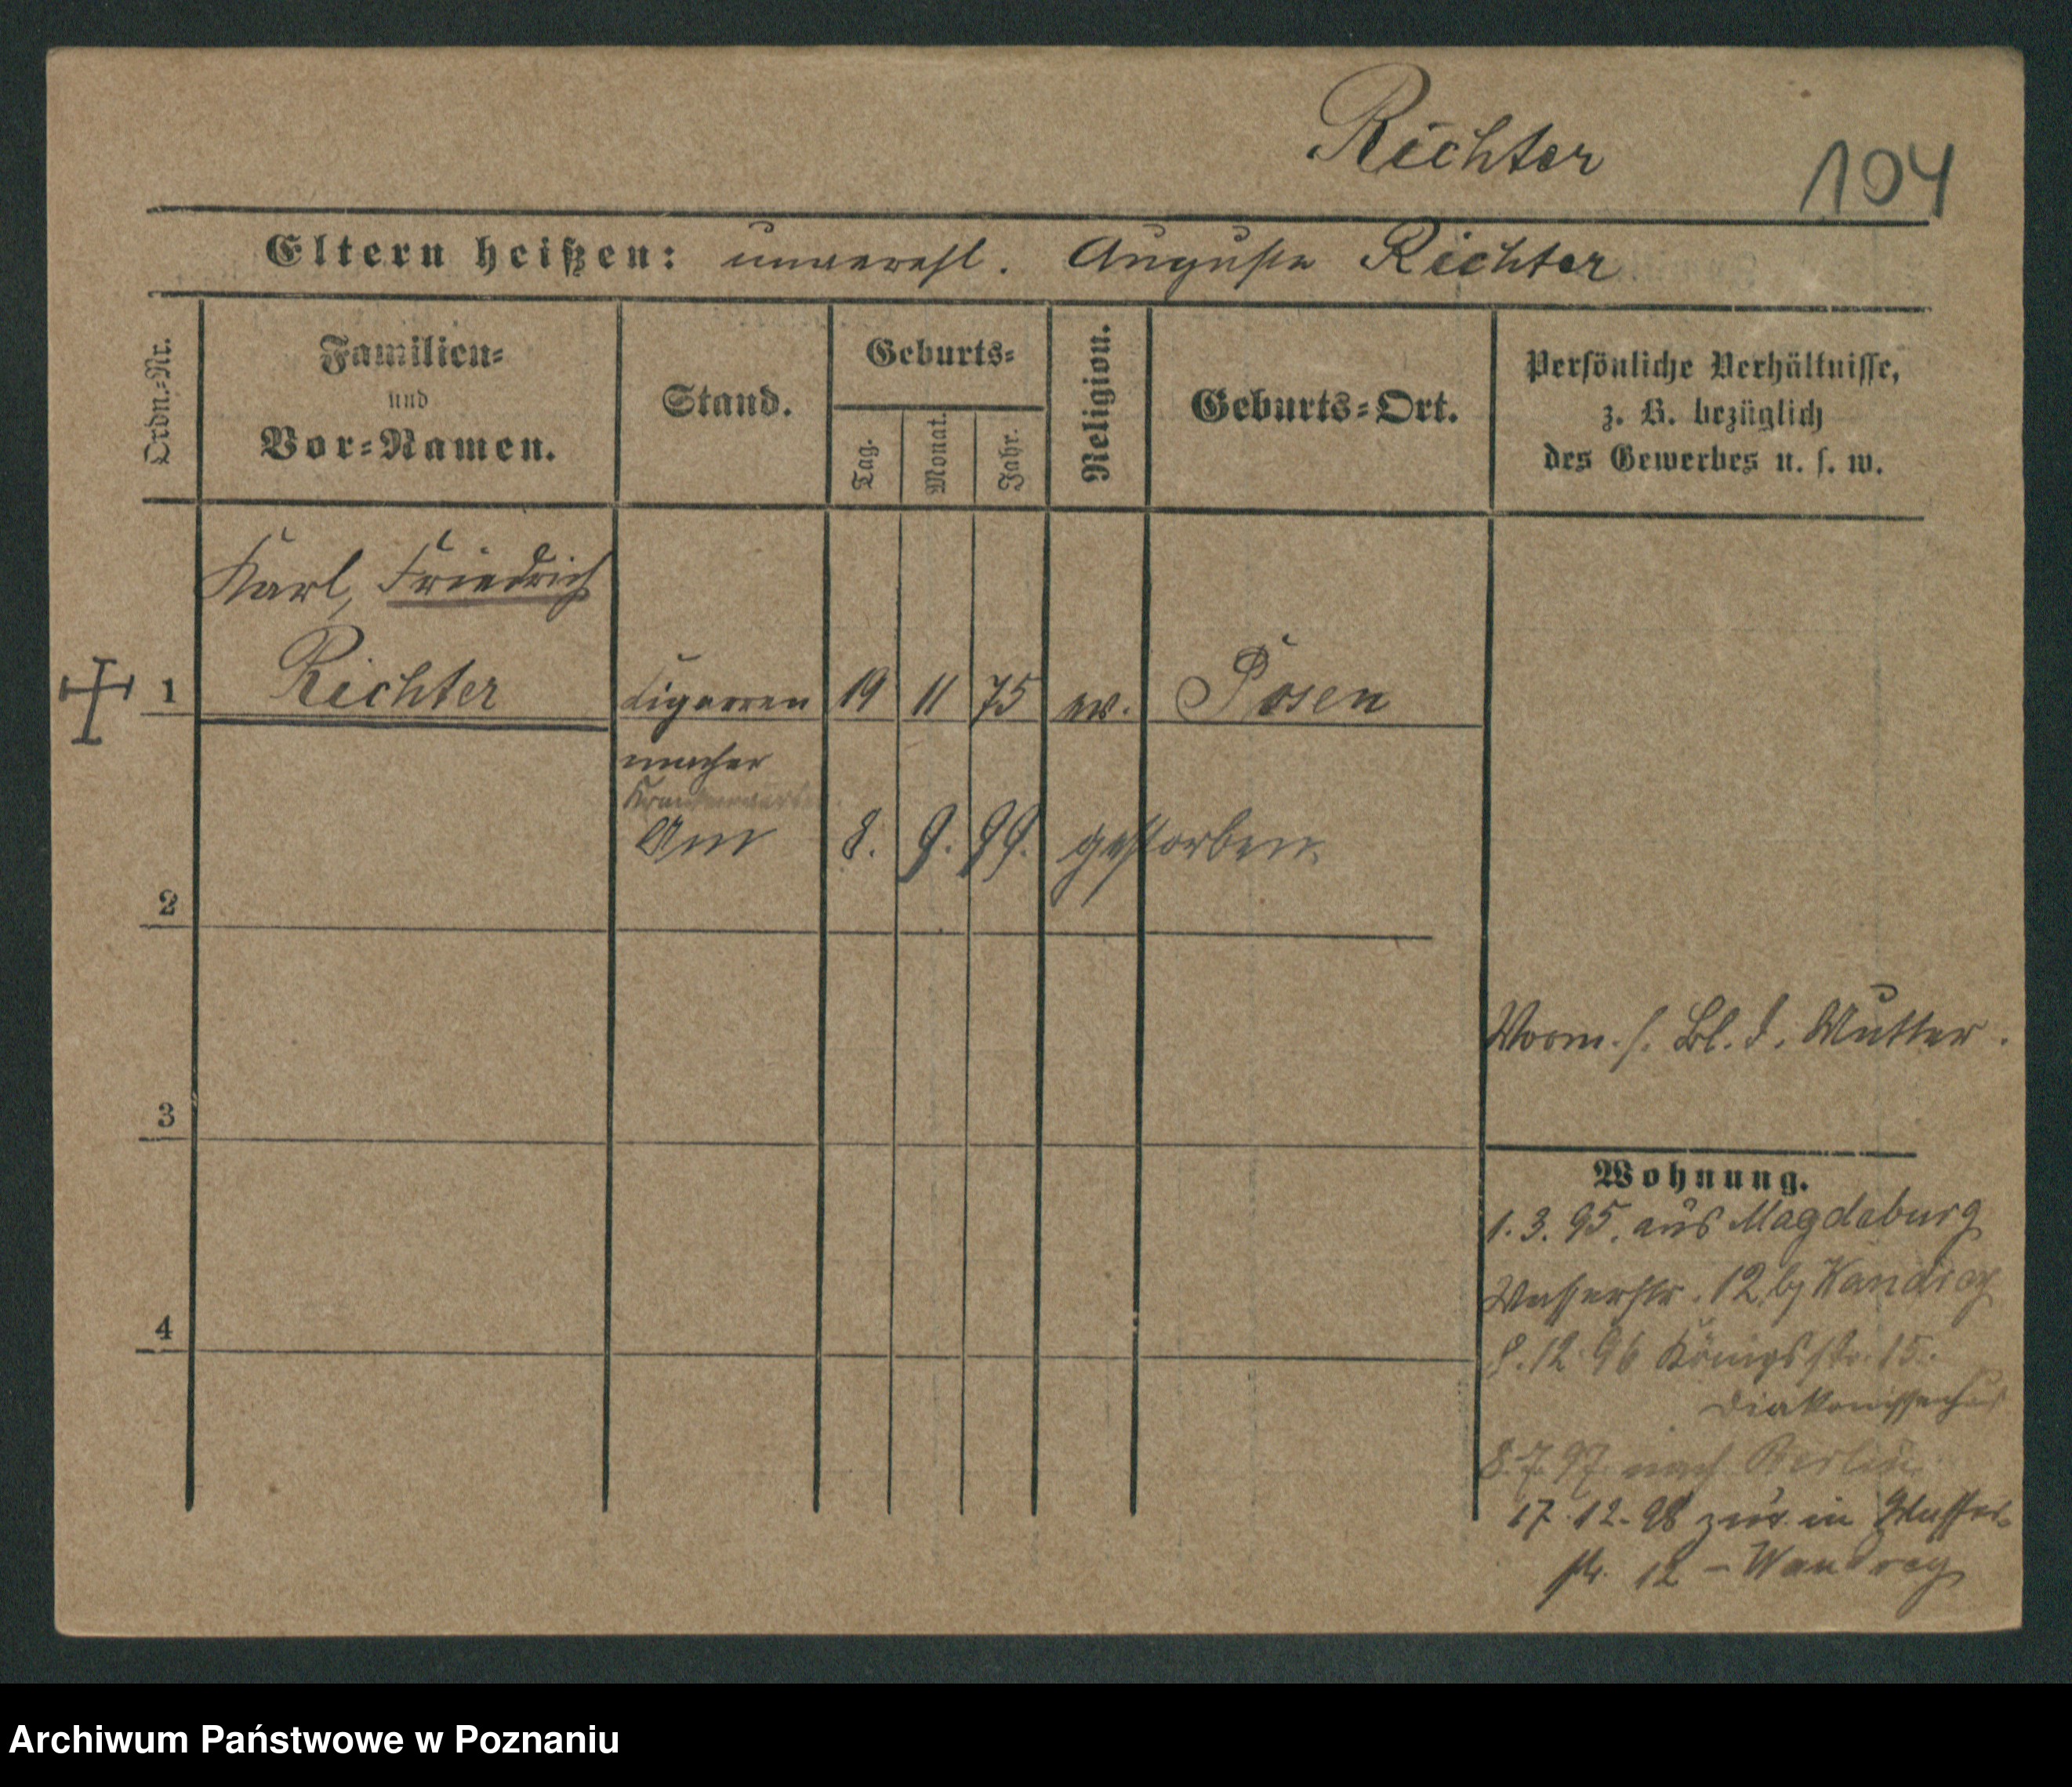 Richter
104
Eltern heißen: unverehl. Auguste Richter
Ordn.-Nr.
Familien-
und
Vor-Namen.
Stand.
Geburts-
Tag.
Monat.
Jahr.
Religion.
Geburts-Ort.
Persönliche Verhältnisse,
z. B. bezüglich
des Gewerbes u. s. w.
Karl, Friedrich
1 Richter Cigarren 19 11 75 ev. Posen
macher
Krankenwärter
Am 8. 9. 99. gestorben.
2
Vorm. s. Bl. d. Mutter.
3
Wohnung.
1. 3. 95. aus Magdeburg
Wasserstr. 12 bj Wandrey
4
8. 12. 96 Königsstr. 15.
Diakonissenhaus
8. 7. 97. nach Berlin
17. 12. 98 zur. in Wasser-
str. 12 - Wandrey
Archiwum Państwowe w Poznaniu